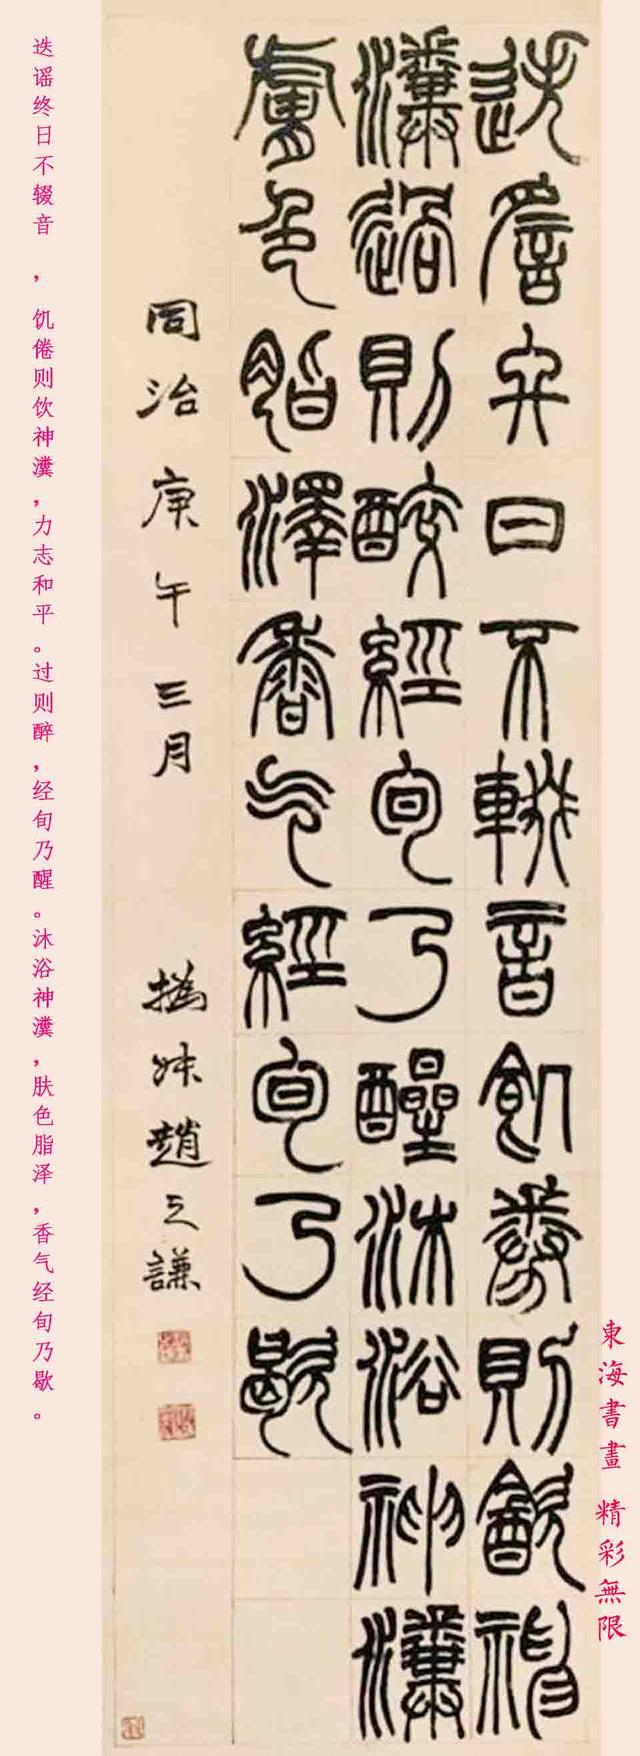 東海書畫 精彩無限
迭謠終日不輟音飢倦則飲神
瀵過則醉經旬乃醒沐浴神瀵
膚色脂澤香气經旬乃歇
同治庚午三月 撝叔趙之謙
迭谣终日不辍音，饥倦则饮神瀵，力志和平。过则醉，经旬乃醒。沐浴神瀵，肤色脂泽，香气经旬乃歇。